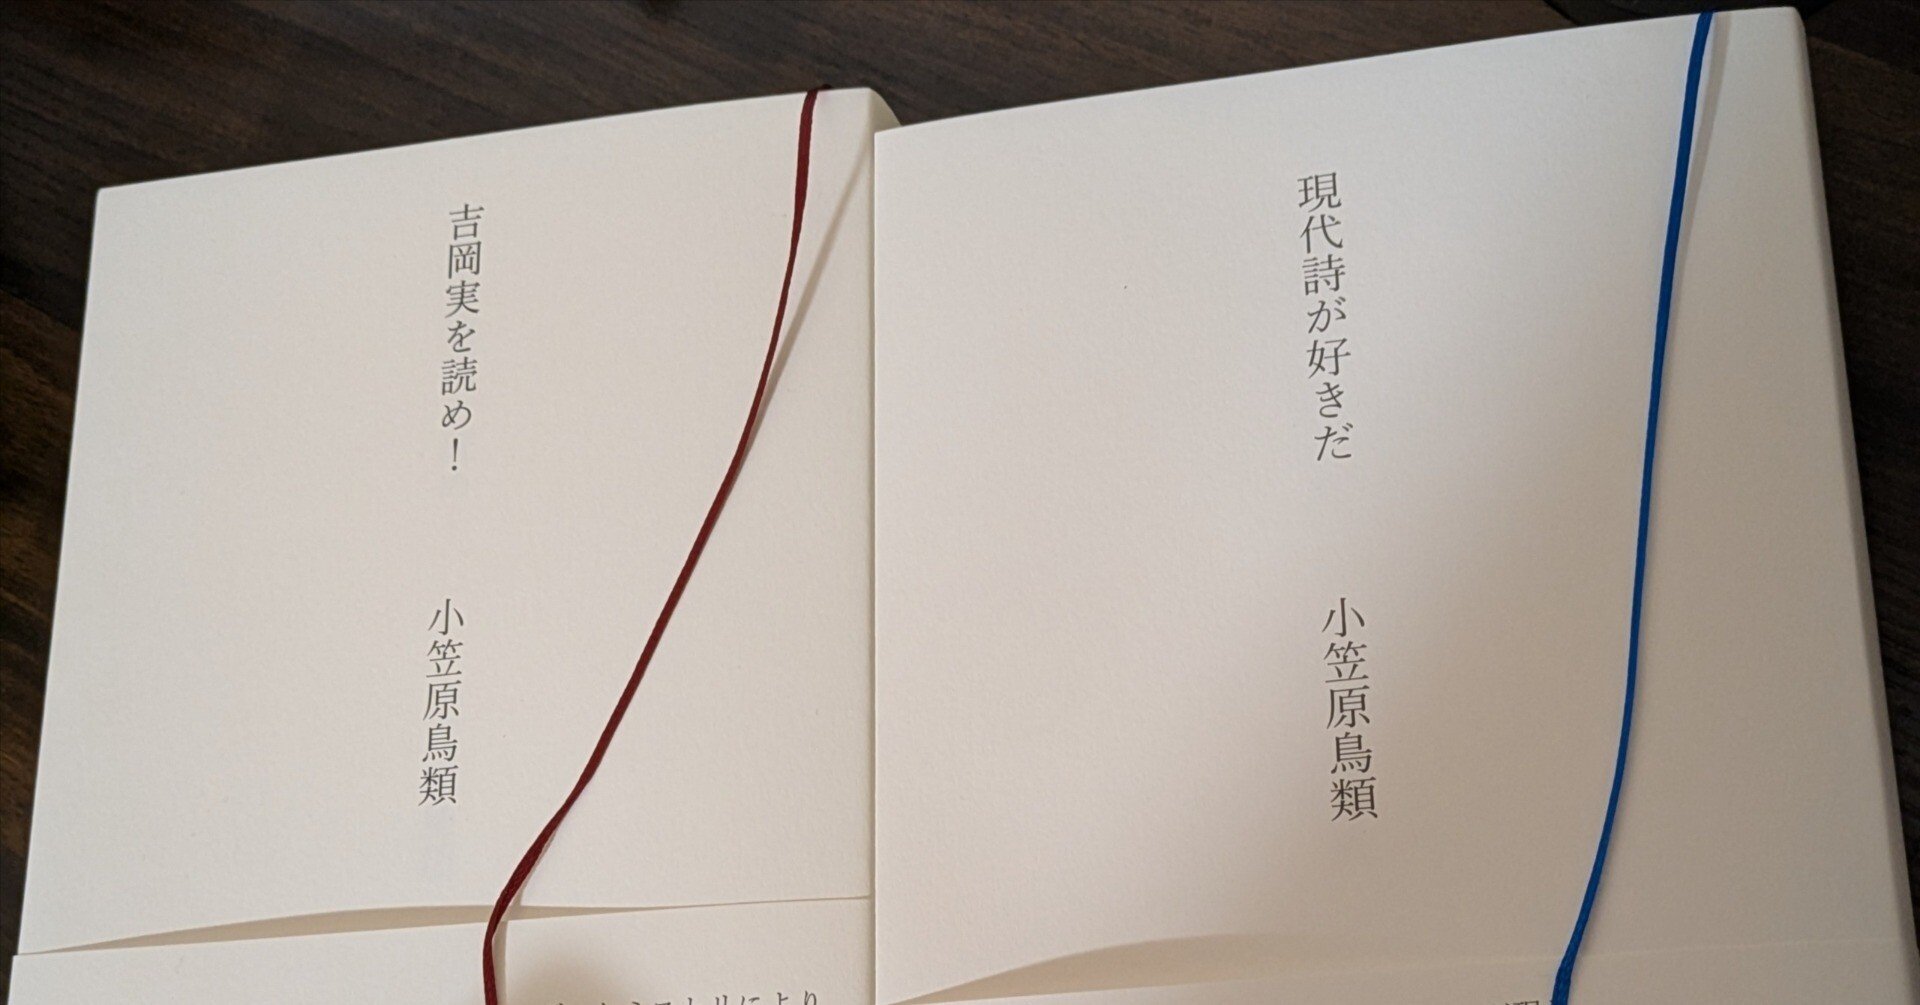 吉岡実を読め!
小笠原鳥類
現代詩が好きだ
小笠原鳥類